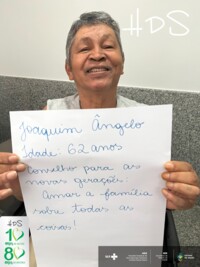 HDS
Joaquim Ângelo
Idade: 62 anos
Conselho para as
novas gerações:
Amar a família
sobre todas as
coisas!
HDS